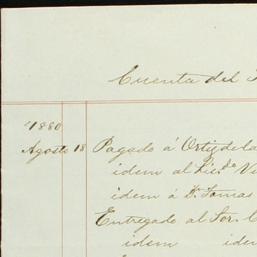 Cuenta del
1880
Agosto 18 Pagado á Ortiz de la
idem al Lis.do
idem á Dn Tomas
Entregado al Sor.
idem idem